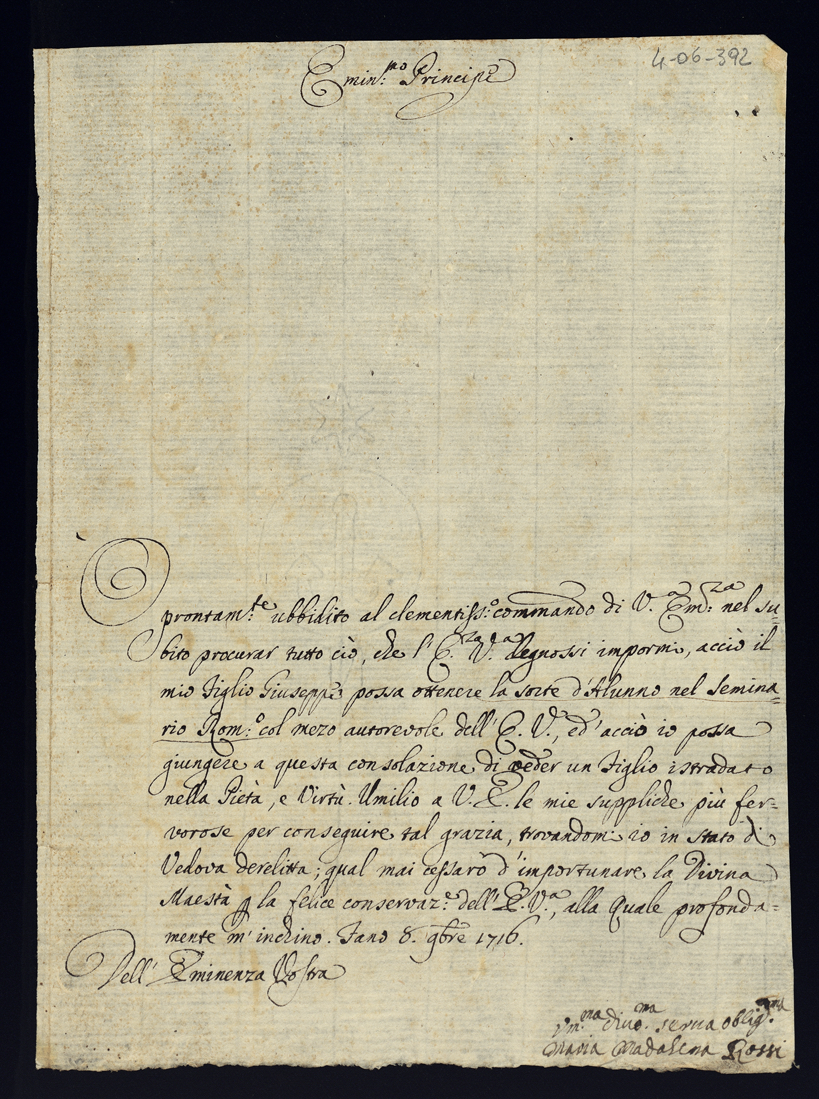 4-06-392
Emin:mo Principe
O prontam:te ubbidito al clementiss:o commando di V.a Em:za nel su=
bito procurar tutto ciò, che l'E.za V.a degnossi impormi, acciò il
mio Figlio Giuseppe possa ottenere la sorte d'Alunno nel Semina=
rio Rom:o col mezo autorevole dell'E. V., ed' acciò io possa
giungere a questa consolazione di veder un Figlio istradato
nella Pietà, e Virtù. Umilio a V. E. le mie suppliche più fer=
vorose per conseguire tal grazia, trovandomi io in stato di
Vedova derelitta; qual mai cessarò d'importunare la Divina
Maestà p la felice conservaz:e dell'E. V.a, alla quale profonda=
mente m'inchino. Fano 8. 9bre 1716.
Dell'Eminenza Vostra
Um:ma divo:ma serva oblig:ma
Maria Madalena Rossi